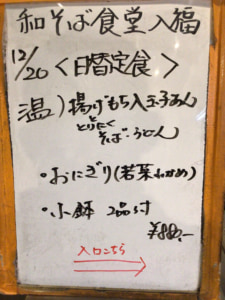 和そば食堂入福
12/20 <日替定食>
温)揚げもち入玉子あん
とりにく
そば・うどん
・おにぎり(若菜わかめ)
・小鉢 2品付
¥880.-
入口こちら